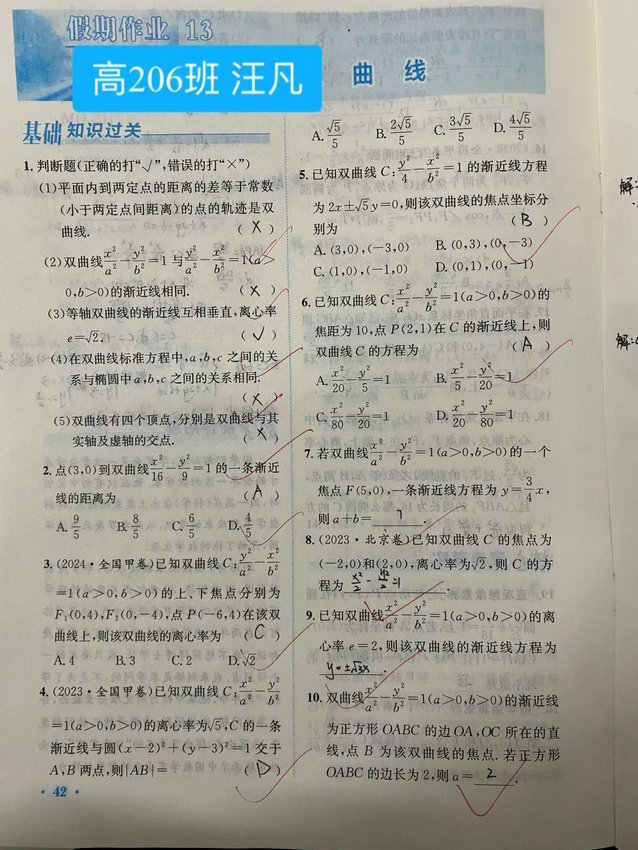 假期作业 13
高206班 汪凡
曲 线
基础 知识过关
1. 判断题(正确的打“√”,错误的打“×”)
(1)平面内到两定点的距离的差等于常数
(小于两定点间距离)的点的轨迹是双
曲线. ( × )
(2)双曲线x²/a²-y²/b²=1与y²/a²-x²/b²=1(a>
0,b>0)的渐近线相同. ( × )
(3)等轴双曲线的渐近线互相垂直,离心率
e=√2. ( √ )
(4)在双曲线标准方程中,a,b,c 之间的关
系与椭圆中 a,b,c 之间的关系相同.
( × )
(5)双曲线有四个顶点,分别是双曲线与其
实轴及虚轴的交点. ( × )
2. 点(3,0)到双曲线x²/16-y²/9=1 的一条渐近
线的距离为 ( A )
A. 9/5 B. 8/5 C. 6/5 D. 4/5
3. (2024·全国甲卷)已知双曲线 C:y²/a²-x²/b²
=1(a>0,b>0)的上、下焦点分别为
F₁(0,4),F₂(0,-4),点 P(-6,4)在该双
曲线上,则该双曲线的离心率为 ( C )
A. 4 B. 3 C. 2 D. √2
4. (2023·全国甲卷)已知双曲线 C:x²/a²-y²/b²
=1(a>0,b>0)的离心率为√5,C 的一条
渐近线与圆(x-2)²+(y-3)²=1 交于
A,B 两点,则|AB|= ( D )
· 42 ·
A. √5/5 B. 2√5/5 C. 3√5/5 D. 4√5/5
5. 已知双曲线 C:y²/4-x²/a²=1 的渐近线方程
为 2x±√5y=0,则该双曲线的焦点坐标分
别为 ( B )
A. (3,0),(-3,0) B. (0,3),(0,-3)
C. (1,0),(-1,0) D. (0,1),(0,-1)
6. 已知双曲线 C:x²/a²-y²/b²=1(a>0,b>0)的
焦距为 10,点 P(2,1)在 C 的渐近线上,则
双曲线 C 的方程为 ( A )
A. x²/20-y²/5=1 B. x²/5-y²/20=1
C. x²/80-y²/20=1 D. x²/20-y²/80=1
7. 若双曲线x²/a²-y²/b²=1(a>0,b>0)的一个
焦点 F(5,0),一条渐近线方程为 y=3/4x,
则 a+b= 7 .
8. (2023·北京卷)已知双曲线 C 的焦点为
(-2,0)和(2,0),离心率为√2,则 C 的方
程为 x²/2-y²/2=1
9. 已知双曲线x²/a²-y²/b²=1(a>0,b>0)的离
心率 e=2,则该双曲线的渐近线方程为
y=±√3x
10. 双曲线x²/a²-y²/b²=1(a>0,b>0)的渐近线
为正方形 OABC 的边 OA,OC 所在的直
线,点 B 为该双曲线的焦点. 若正方形
OABC 的边长为 2,则 a= 2 .
解: